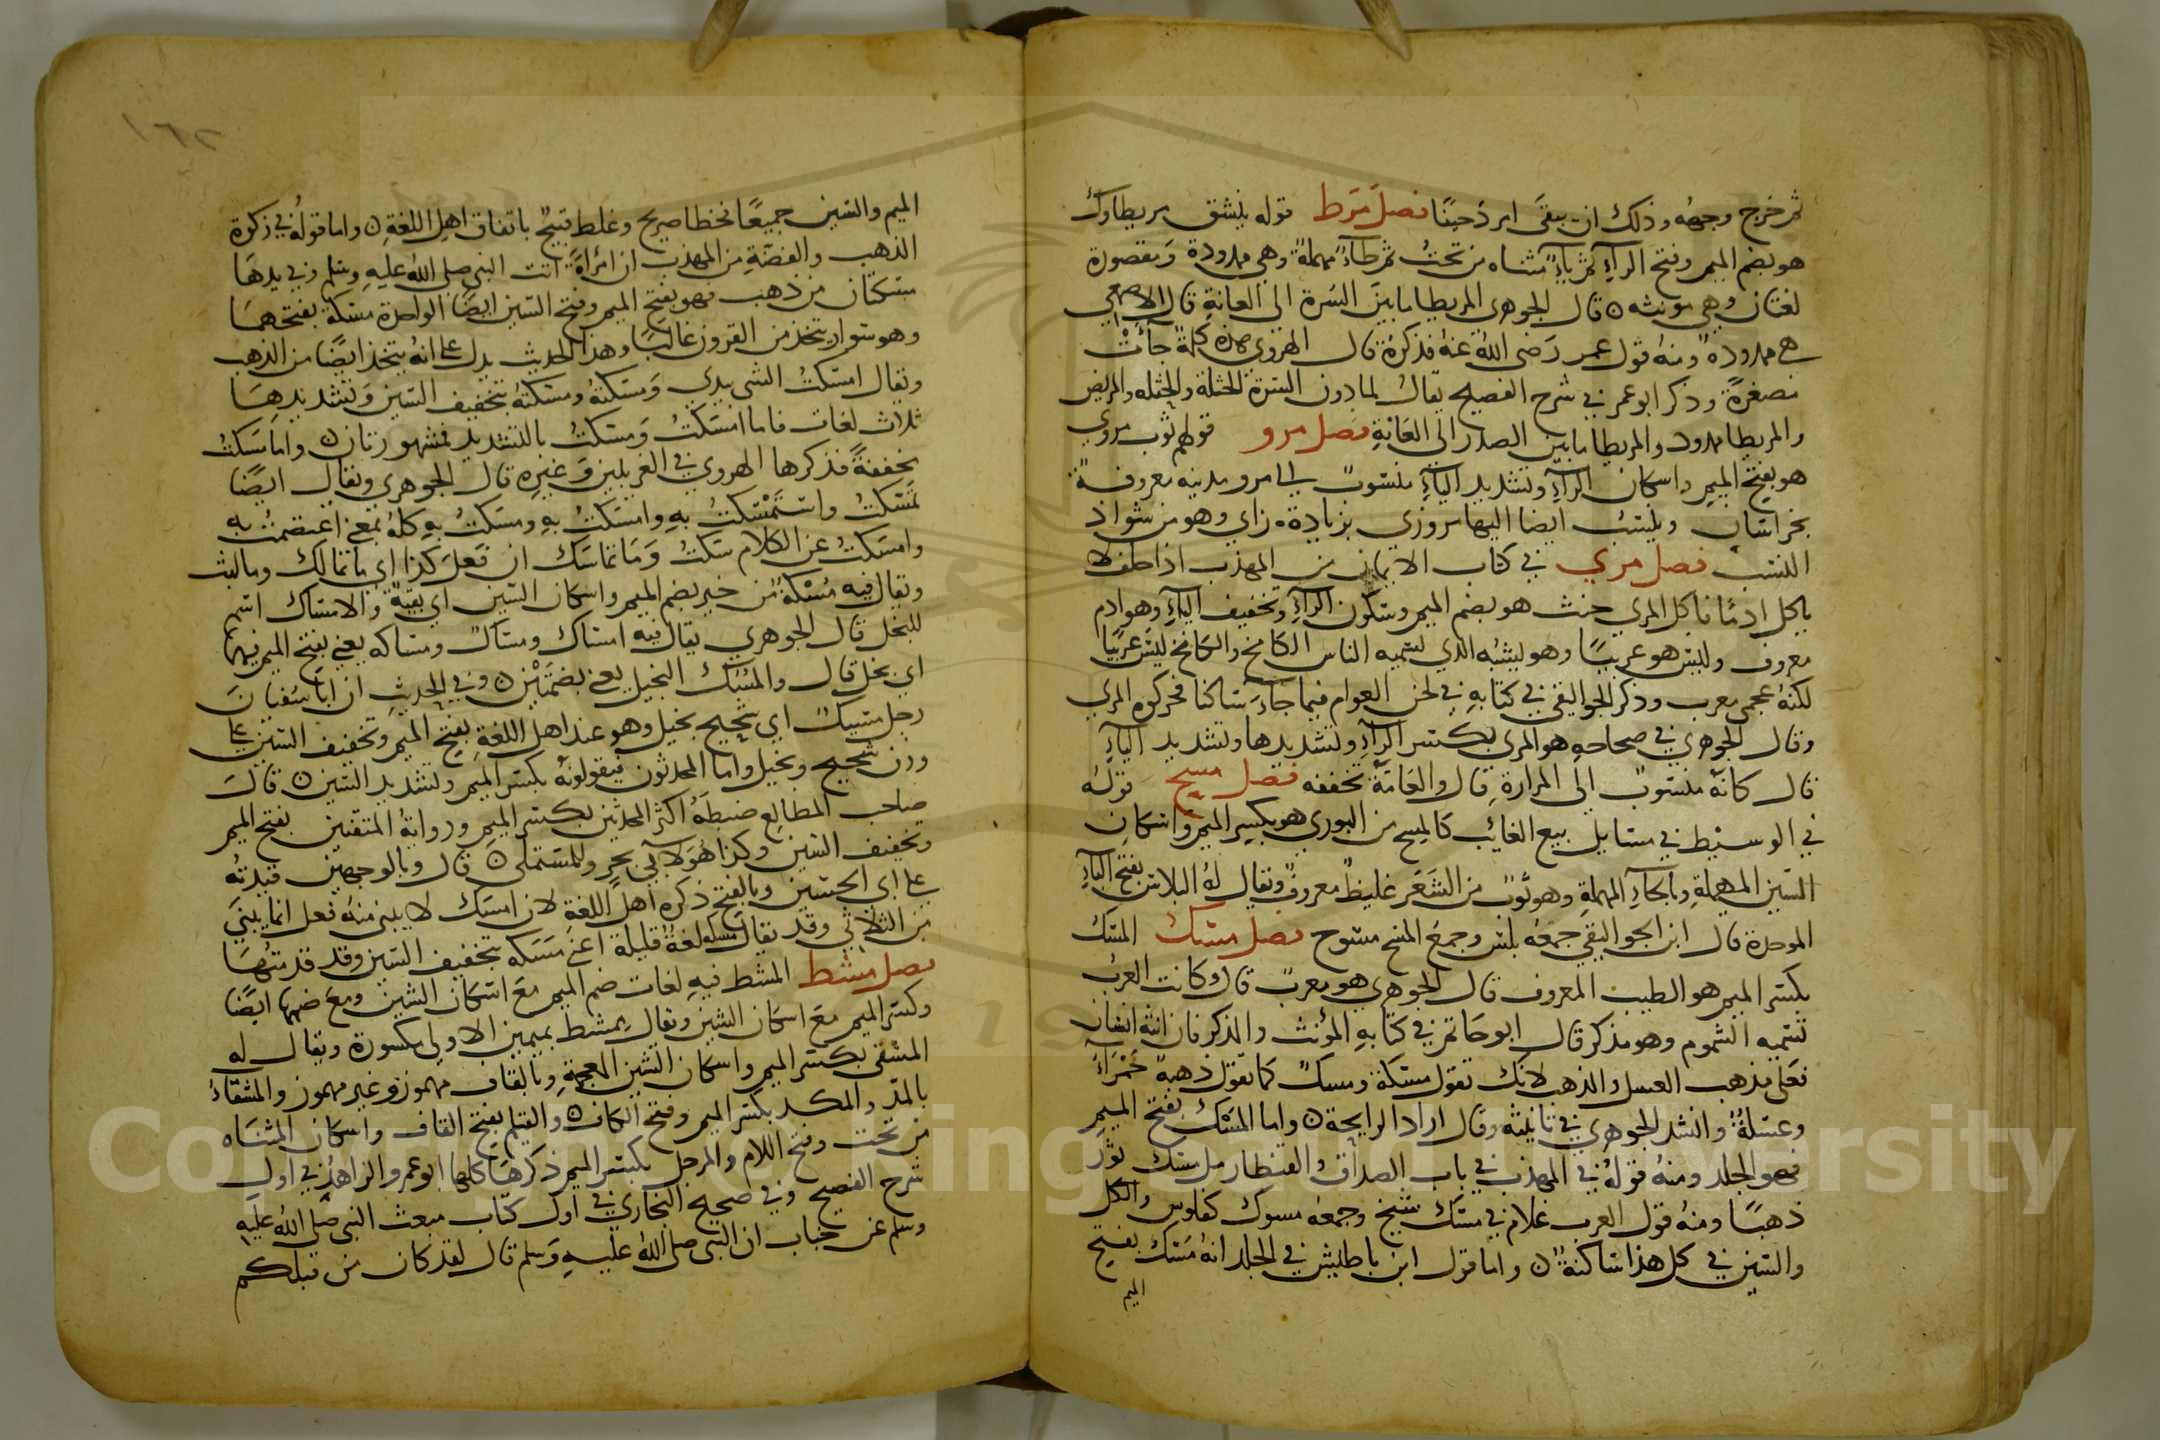 ثم خرج وجهه وذلك ان يبقى امرد حينا فصل مرط قوله ينشق مريطاوك
هو بضم الميم وفتح الرآء ثم يآء مثناه من تحت ثم طآء مهملة وهي ممدودة ومقصورة
لغتان وهي مونثه ٥ قال الجوهري المريطا ما بين السرة الى العانة قال الاصمعي
هي ممدودة ومنه قول عمر رضي الله عنه فذكره قال الهروي هذه كلمة جآءت
مصغرة وذكر ابو عمر في شرح الفصيح يقال لما دون السرة الحثلة والمريض
والمريطا ممدود والمريطا ما بين الصدر الى العانة فصل مرو قولهم ثوب مروي
هو بفتح الميم واسكان الرآء وتشديد اليآء منسوب الى مرو مدينه معروفة
بخراسان وينسب ايضا اليها مروزي بزيادة زاي وهو من شواذ
النسب فصل مري في كتاب الايمان من المهذب اذا حلف لا
ياكل ادما فاكل المري حنث هو بضم الميم وسكون الرآء وتخفيف اليآء وهو ادم
معروف وليس هو عربيا وهو يشبه الذي تسميه الناس الكامخ والكامخ ليس عربيا
لكنه عجمي معرب وذكر الجواليقي في كتابه في لحن العوام فيما جآء ساكنا فحركوه المري
وقال الجوهري في صحاحه هو المري بكسر الرآء وتشديدها وتشديد اليآء
قال كانه منسوب الى المرارة قال والعامة تخففه فصل مسح قوله
في الوسيط في مسايل بيع الغائب كالمسح من البوري هو بكسر الميم واسكان
السين المهملة وبالحآء المهملة وهو ثوب من الشعر غليظ معروف ويقال له البلاس بفتح البآء
الموحدة قال ابن الجواليقي جمعه بلس وجمع المسح مسوح فصل مسك المسك
بكسر الميم هو الطيب المعروف قال الجوهري هو معرب قال وكانت العرب
تسميه المشموم وهو مذكر قال ابو حاتم في كتابه المؤنث والمذكر فان انثه انسان
فعلى مذهب العسل والذهب لانك تقول مسكة ومسك كما تقول ذهبة حمرآء
وعسلة وانشد الجوهري في تانيثه وقال اراد الرايحة ٥ واما المسك بفتح الميم
فهو الجلد ومنه قوله في المهذب في باب الصداق والقنطار مل مسك ثور
ذهبا ومنه قول العرب غلام في مسك شيخ وجمعه مسوك كفلوس والكل
والسين في كل هذا ساكنة ٥ واما قول ابن باطيش في الجلد انه مسك بفتح
الميم
١٦٢
الميم والسين جميعا فخطا صريح وغلط قبيح باتفاق اهل اللغة ٥ واما قوله في زكوة
الذهب والفضة من المهذب ان امرأة اتت النبي صلى الله عليه وسلم وفي يدها
مسكتان من ذهب فهو بفتح الميم وفتح السين ايضا الواحدة مسكة بفتحهما
وهو سوار يتخذ من القرون غالبا وهذا الحديث يدل على انه يتخذ ايضا من الذهب
ويقال امسكت الشي بيدي ومسكته ومسكته بتخفيف السين وتشديدها
ثلاث لغات فاما امسكت ومسكت بالتشديد فمشهورتان واما مسكت
مخففة فذكرها الهروي في الغريبين وغيره قال الجوهري ويقال ايضا
تمسكت واستمسكت به وامتسكت به ومسكت به كله بمعنى اعتصمت به
وامسكت عن الكلام سكت وما تماسك ان فعل كذا اي ما تمالك وما لبث
ويقال فيه مسكة من خير بضم الميم واسكان السين اي بقية والامساك اسم
للبخل قال الجوهري يقال فيه امساك ومساك ومساكه يعني بفتح الميم فيهما
اي بخل قال والمسك البخيل يعني بضمتين ٥ وفي الحديث ان ابا سفيان
رجل مسيك اي شحيح بخيل وهو عند اهل اللغة بفتح الميم وتخفيف السين على
وزن شحيح وبخيل واما المحدثون فيقولونه بكسر الميم وتشديد السين ٥ قال
صاحب المطالع ضبطه اكثر المحدثين بكسر الميم ورواية المتقنين بفتح الميم
وتخفيف السين وكذا هو لابي بحر وللمستملي ٥ قال وبالوجهين قيدته
على ابي الحسين وبالفتح ذكره اهل اللغة لان امسك لا يبنى منه فعل انما يبنى
من الثلاثي وقد يقال مسكه لغة قليلة اعني مسكه بتخفيف السين وقد قدمتها
فصل مشط المشط فيه لغات ضم الميم مع اسكان الشين ومع ضمها ايضا
وكسر الميم مع اسكان الشين ويقال ممشط بميمين الاولى مكسورة ويقال له
المشقى بكسر الميم واسكان الشين المعجمة وبالقاف مهموز وغير مهموز والمشقاء
بالمد والمكد بكسر الميم وفتح الكاف ٥ والقيلم بفتح القاف واسكان المثناه
من تحت وفتح اللام والمرجل بكسر الميم ذكرها كلها ابو عمر والزاهد في اول
شرح الفصيح وفي صحيح البخاري في اول كتاب مبعث النبي صلى الله عليه
وسلم عن خباب ان النبي صلى الله عليه وسلم قال لقد كان من قبلكم